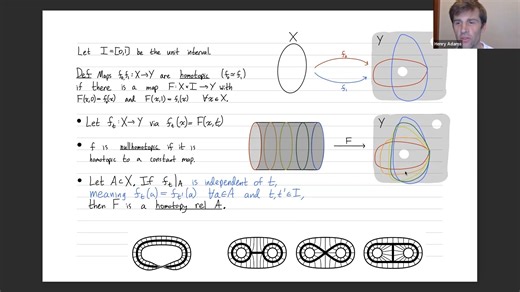 Let I=[0,1] be the unit interval.
X
Y
Def Maps f₀,f₁:X→Y are homotopic (f₀≃f₁)
if there is a map F:X×I→Y with
F(x,0)=f₀(x) and F(x,1)=f₁(x) ∀x∈X.
f₀
f₁
• Let fₜ:X→Y via fₜ(x)=F(x,t)
• f is nullhomotopic if it is
homotopic to a constant map.
F
Y
• Let A⊂X. If fₜ|A is independent of t,
meaning fₜ(a)=fₜ'(a) ∀a∈A and t,t'∈I,
then F is a homotopy rel A.
Henry Adams